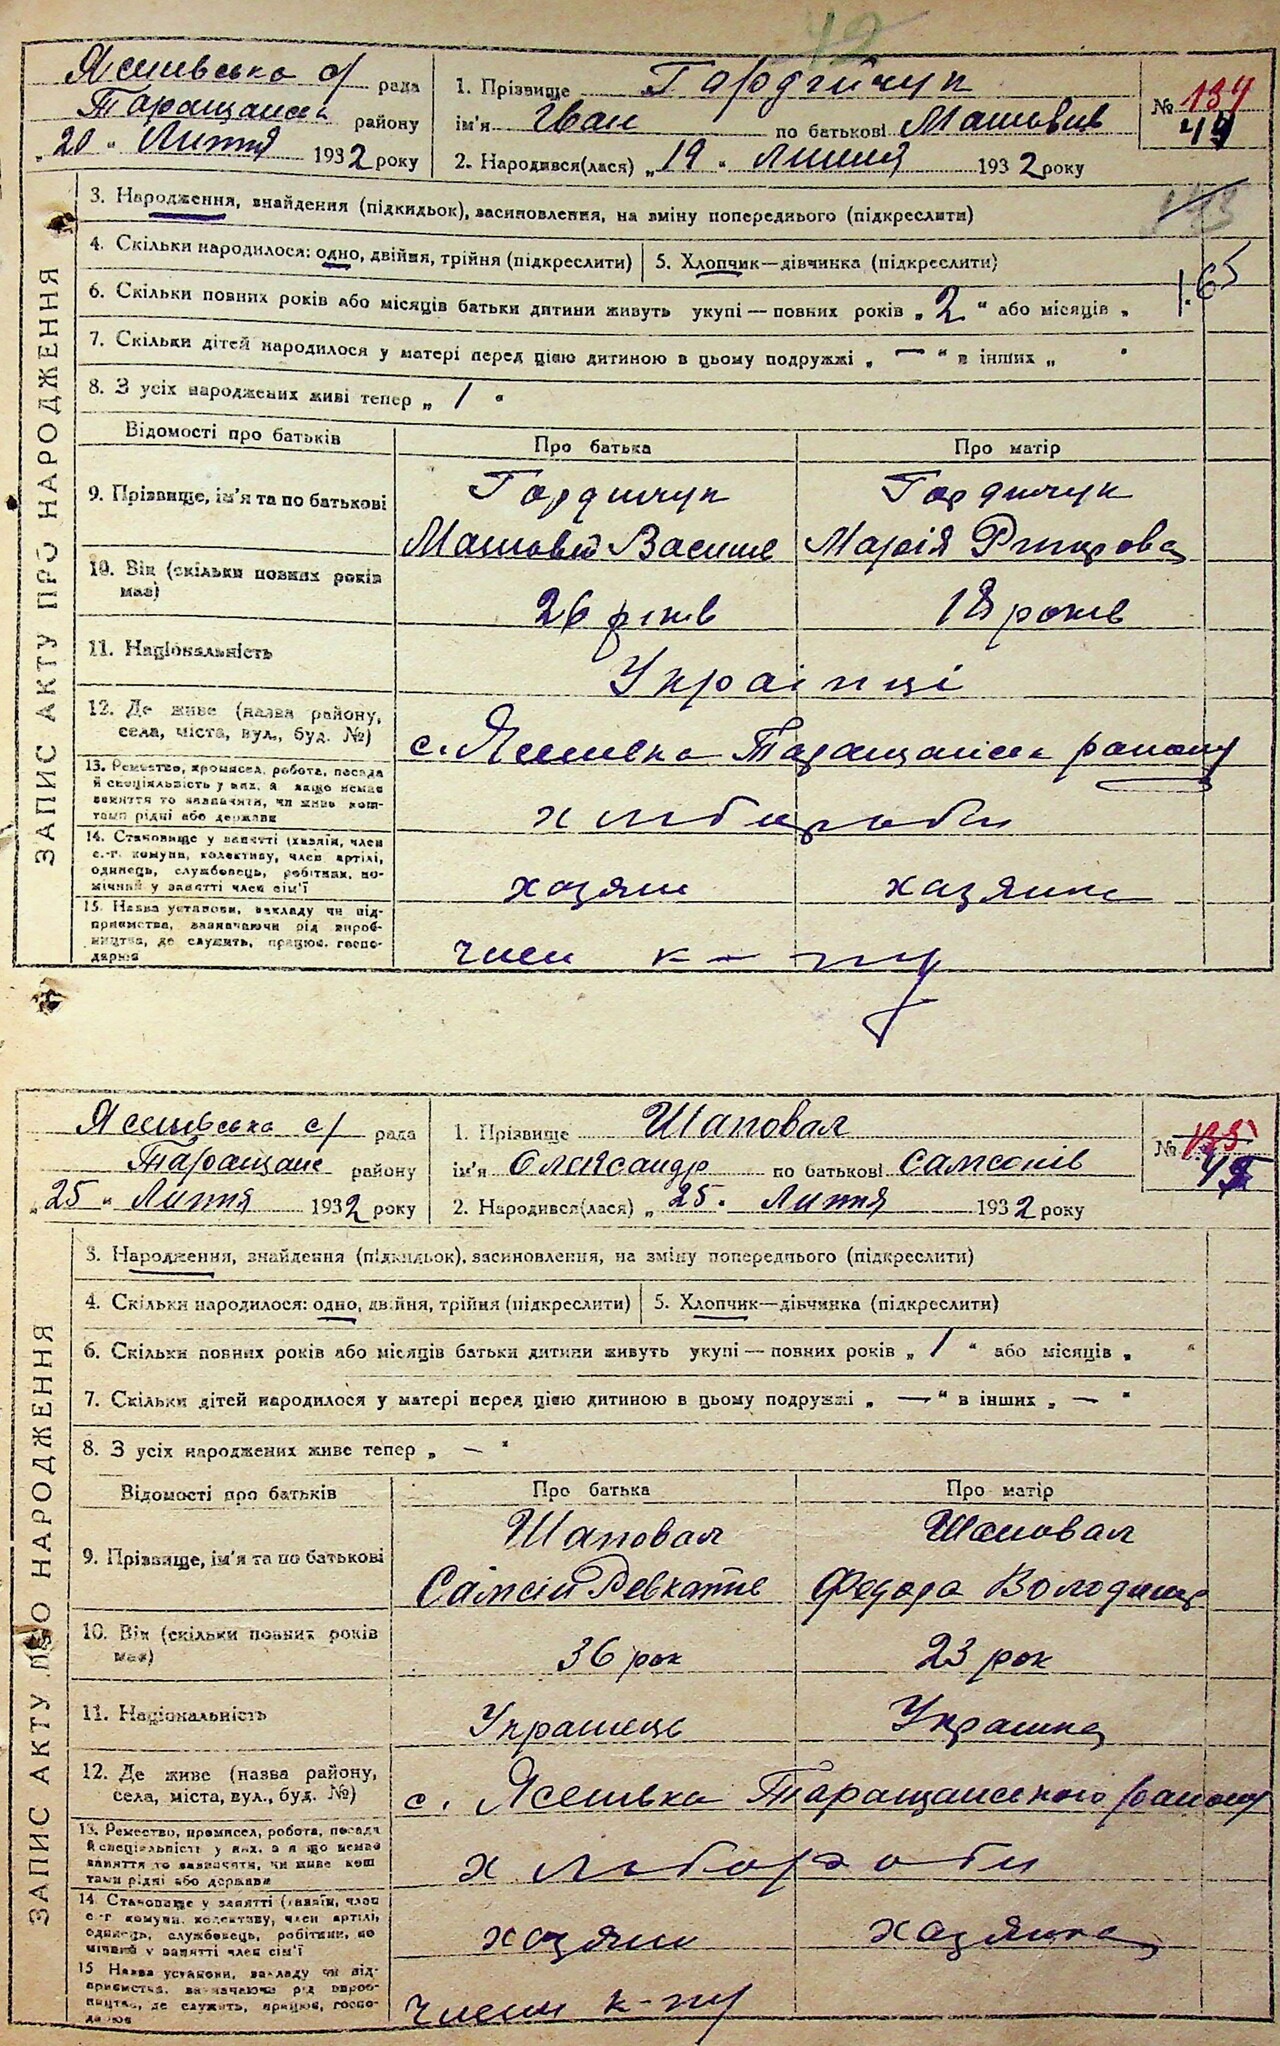 42
Ясенівська с/ рада
Таращанськ району
„20“ Липня 1932 року
1. Прізвище Гордійчук
ім'я Іван по батькові
2. Народився(лася) „19“ Липня 1932 року
№ 134
44
ЗАПИС АКТУ ПРО НАРОДЖЕННЯ
3. Народження, знайдення (підкидьок), засиновлення, на зміну попереднього (підкреслити)
4. Скільки народилося: одно, двійня, трійня (підкреслити)
5. Хлопчик—дівчинка (підкреслити)
6. Скільки повних років або місяців батьки дитини живуть укупі — повних років „2“ або місяців „
1.65
7. Скільки дітей народилося у матері перед цією дитиною в цьому подружжі „—“ в інших „ “
8. З усіх народжених живі тепер „1“
Відомості про батьків
Про батька
Про матір
9. Прізвище, ім'я та по батькові
Гордичук
Гордичук
Василів
Марія
10. Вік (скільки повних років має)
26 років
18 років
11. Національність
Українці
12. Де живе (назва району, села, міста, вул., буд. №)
с. Ясенівка Таращанськ району
13. Ремество, промисел, робота, посада
й спеціяльність у них, а якщо немає
заняття то зазначити, чи живе кош-
тами рідні або держави
хлібороби
14. Становище у занятті (хазяїн, член
с.-г. комуни, колективу, член артілі,
одинець, службовець, робітник, по-
мічний у занятті член сім'ї
хазяїн
хазяйка
15. Назва установи, закладу чи під-
приємства, зазначаючи рід вироб-
ництва, де служить, працює, госпо-
дарює
член к-пу
Ясенівська с/ рада
Таращанс району
„25“ Липня 1932 року
1. Прізвище Шаповал
ім'я Олександр по батькові Самсонів
2. Народився(лася) „25“ Липня 1932 року
№ 135
45
ЗАПИС АКТУ ПРО НАРОДЖЕННЯ
3. Народження, знайдення (підкидьок), засиновлення, на зміну попереднього (підкреслити)
4. Скільки народилося: одно, двійня, трійня (підкреслити)
5. Хлопчик—дівчинка (підкреслити)
6. Скільки повних років або місяців батьки дитини живуть укупі — повних років „1“ або місяців „ “
7. Скільки дітей народилося у матері перед цією дитиною в цьому подружжі „—“ в інших „—“
8. З усіх народжених живе тепер „—“
Відомості про батьків
Про батька
Про матір
9. Прізвище, ім'я та по батькові
Шаповал
Шаповал
Самсій
Федора Володимир
10. Вік (скільки повних років має)
36 рок
23 рок
11. Національність
Українець
Українка
12. Де живе (назва району, села, міста, вул., буд. №)
с. Ясенівка Таращанського району
13. Ремество, промисел, робота, посада
й спеціяльність у них, а якщо немає
заняття то зазначити, чи живе кош
тами рідні або держави
хлібороби
14. Становище у занятті (хазяїн, член
с.-г. комуни, колективу, член артілі,
одинець, службовець, робітник, по
мічний у занятті член сім'ї
хазяїн
хазяйка
15 Назва установи, закладу чи під-
приємства, зазначаючи рід вироб-
ництва, де служить, працює, госпо-
дарює
члени к-пу